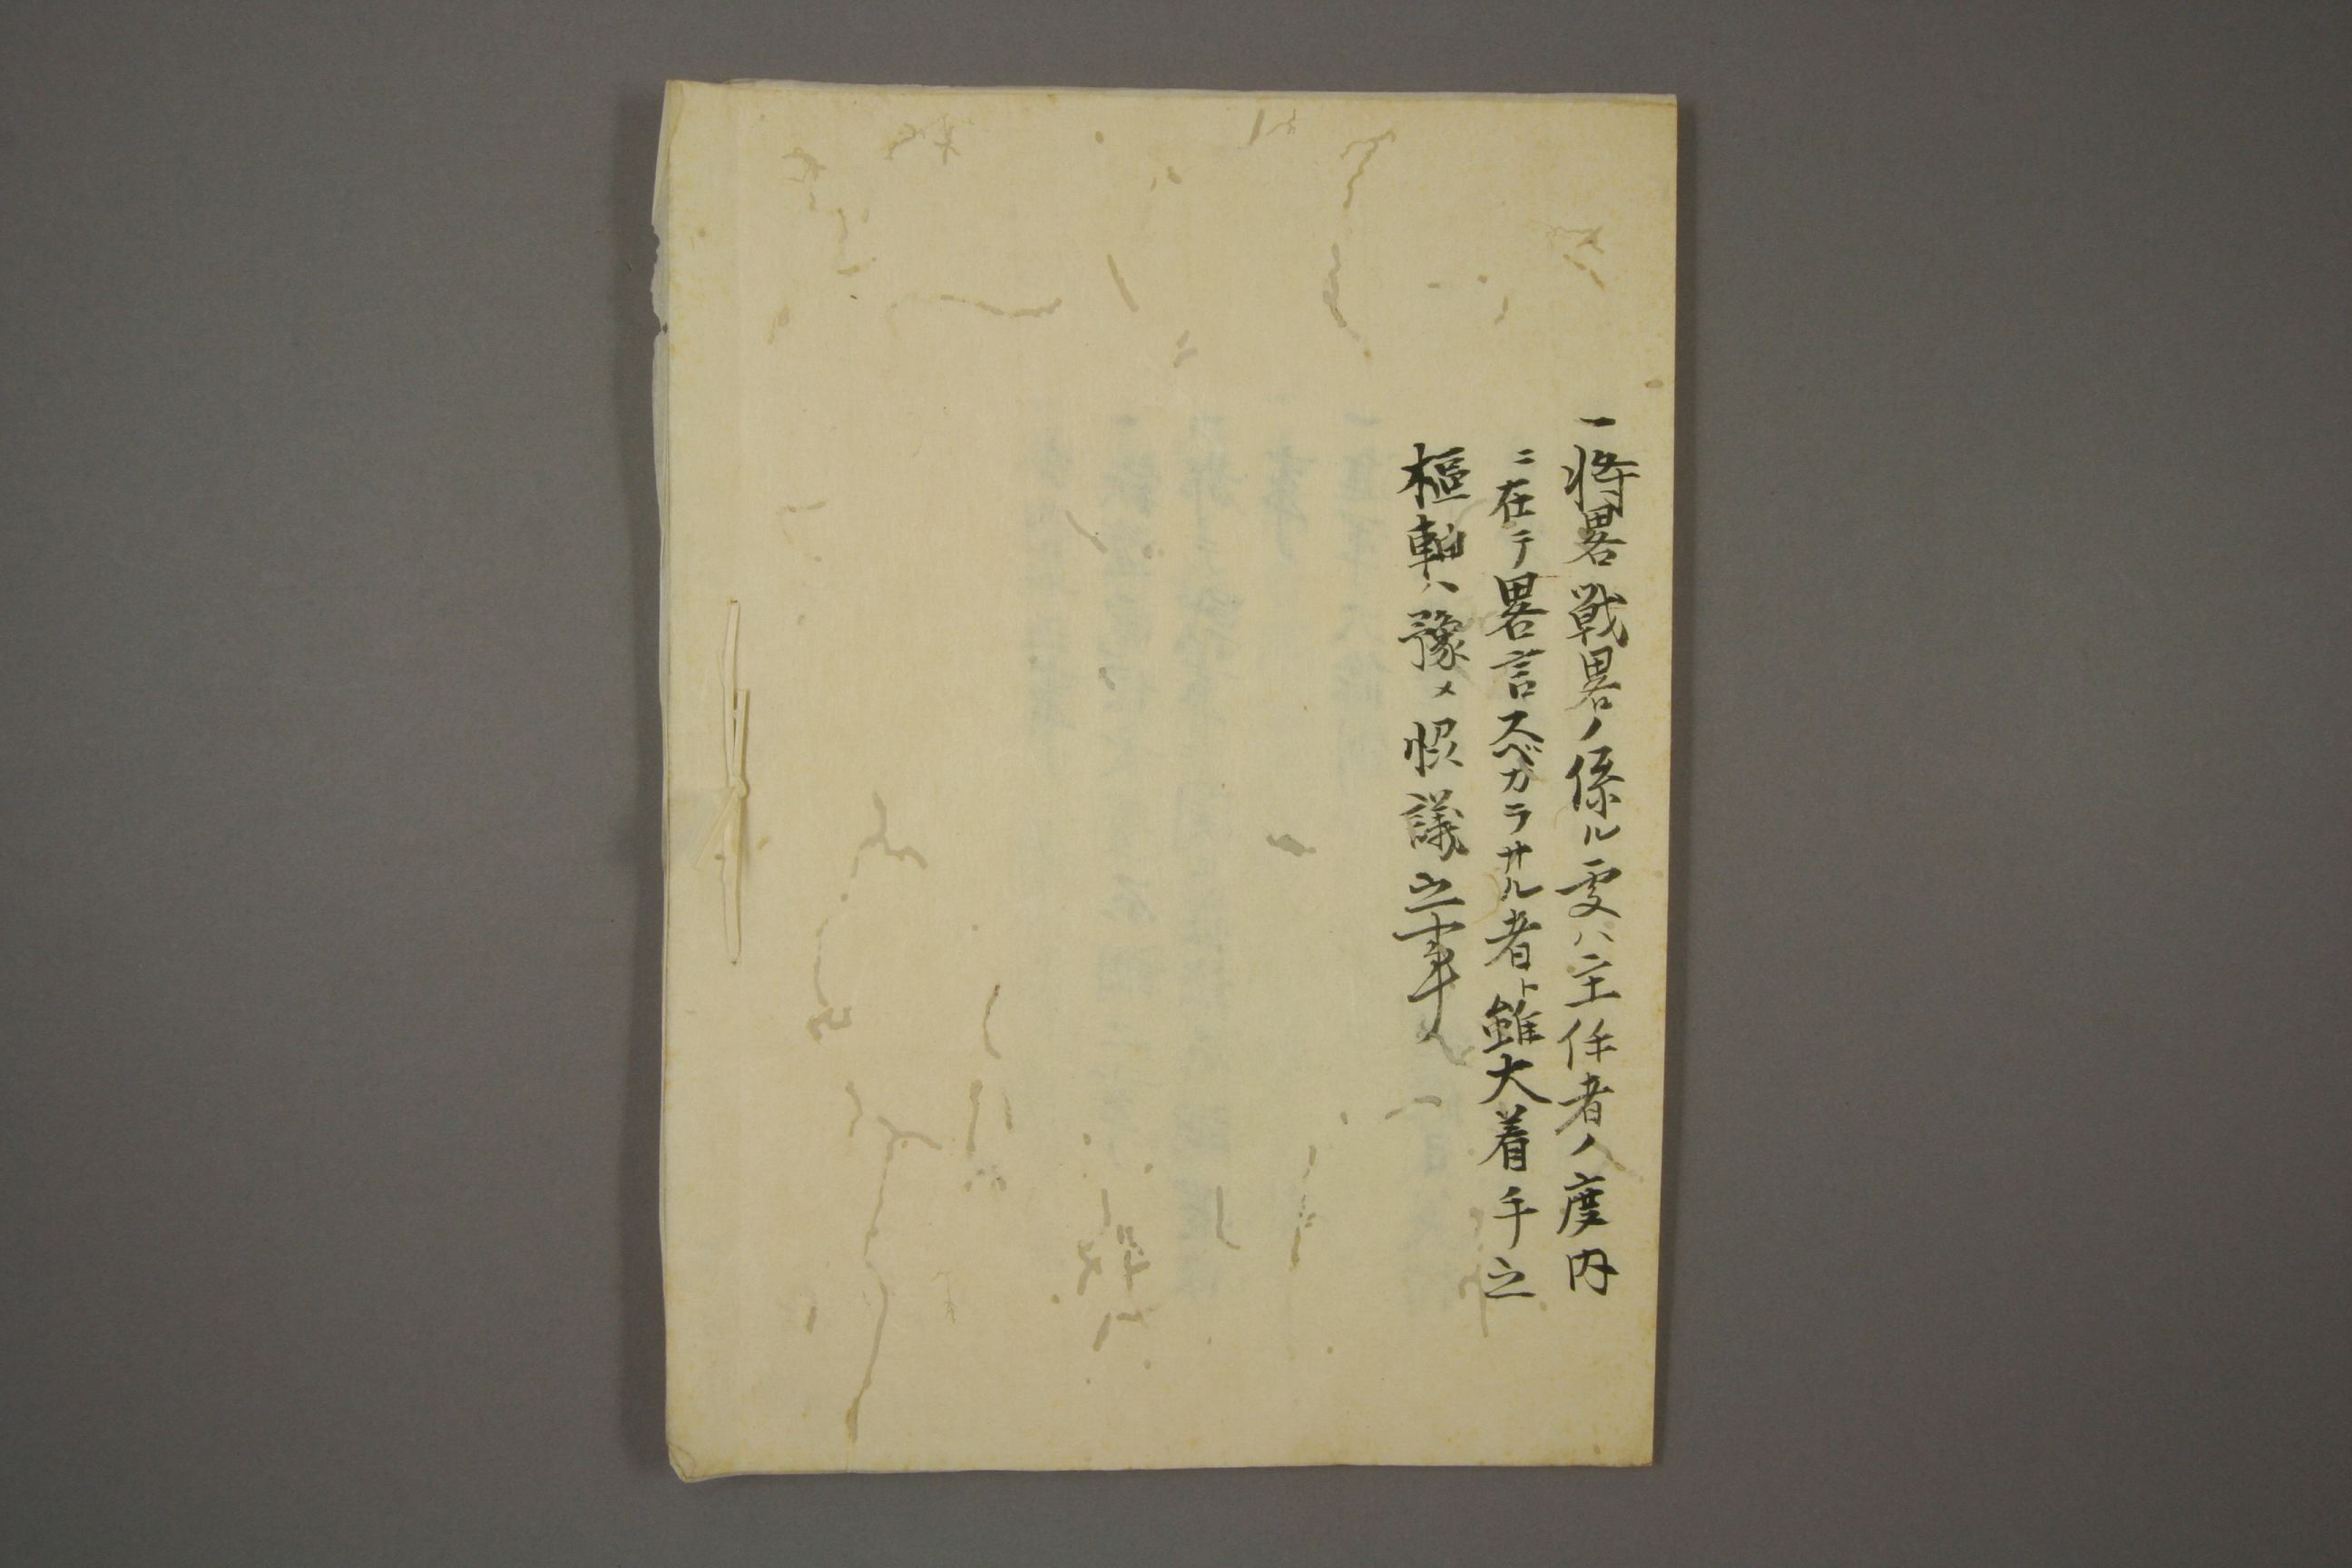 一将畧戦畧ノ係ル処ハ主任者ノ度内
ニ在テ畧言スベカラサル者ト雖大着手之
樞軸ハ豫メ熟議之事